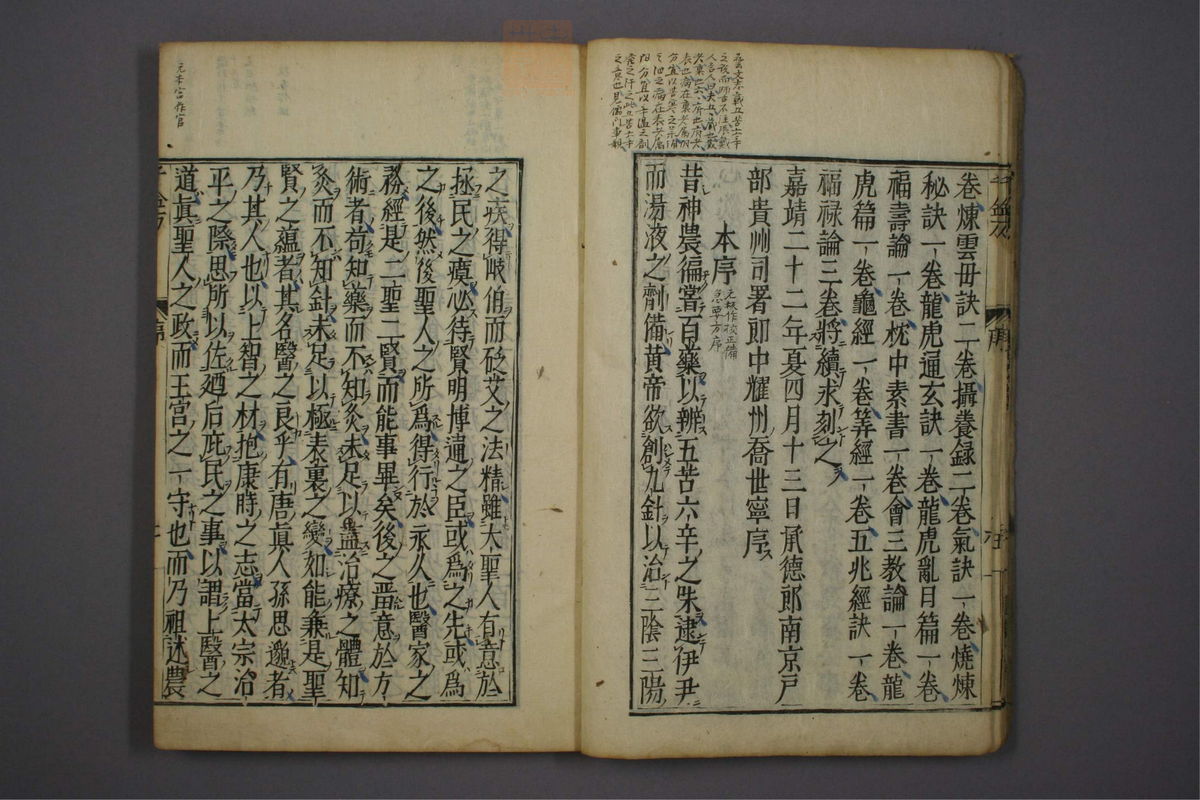 卷煉雲母訣二卷攝養録二卷氣訣一卷燒煉
秘訣一卷龍虎通玄訣一卷龍虎亂日篇一卷
福壽論一卷枕中素書一卷會三教論一卷龍
虎篇一卷龜經一卷筭經一卷五兆經訣一卷
福禄論三卷將續求刻之
嘉靖二十二年夏四月十三日承德郎南京戸
部貴州司署郎中耀州喬世寧序
本序
元板作校正備急要方序
昔神農徧嘗百藥以辨五苦六辛之味逮伊尹
而湯液之劑備黄帝欲創九針以治三陰三陽
之疾得岐伯而砭艾之法精雖大聖人有意於
拯民之瘼必待賢明博通之臣或爲之先或爲
之後然後聖人之所爲得行於永久也醫家之
務經是二聖二賢而能事畢矣後之畱意於方
術者苟知藥而不知灸未足以盡治療之體知
灸而不知針未足以極表裏之變如能兼是聖
賢之蘊者其名醫之良乎有唐眞人孫思邈者
乃其人也以上智之材抱康時之志當太宗治
平之際思所以佐廼后庇民之事以謂上醫之
道眞聖人之政而王官之一守也而乃祖述農
元本宮作官
序